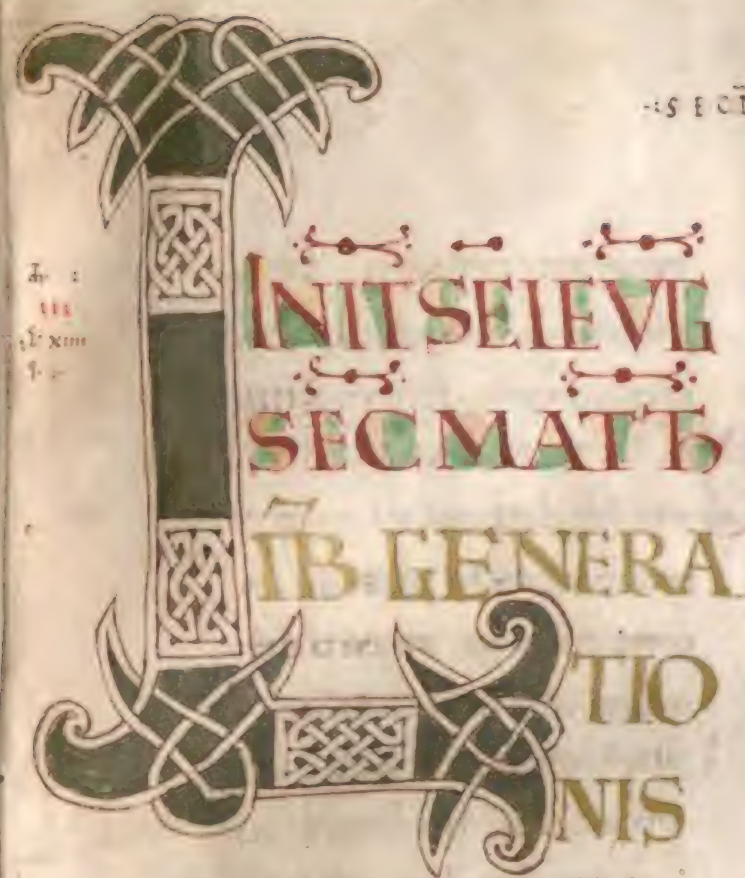 SECD
INIT SEI EVG
SEC MATTH
LIB GENERA
TIO
NIS